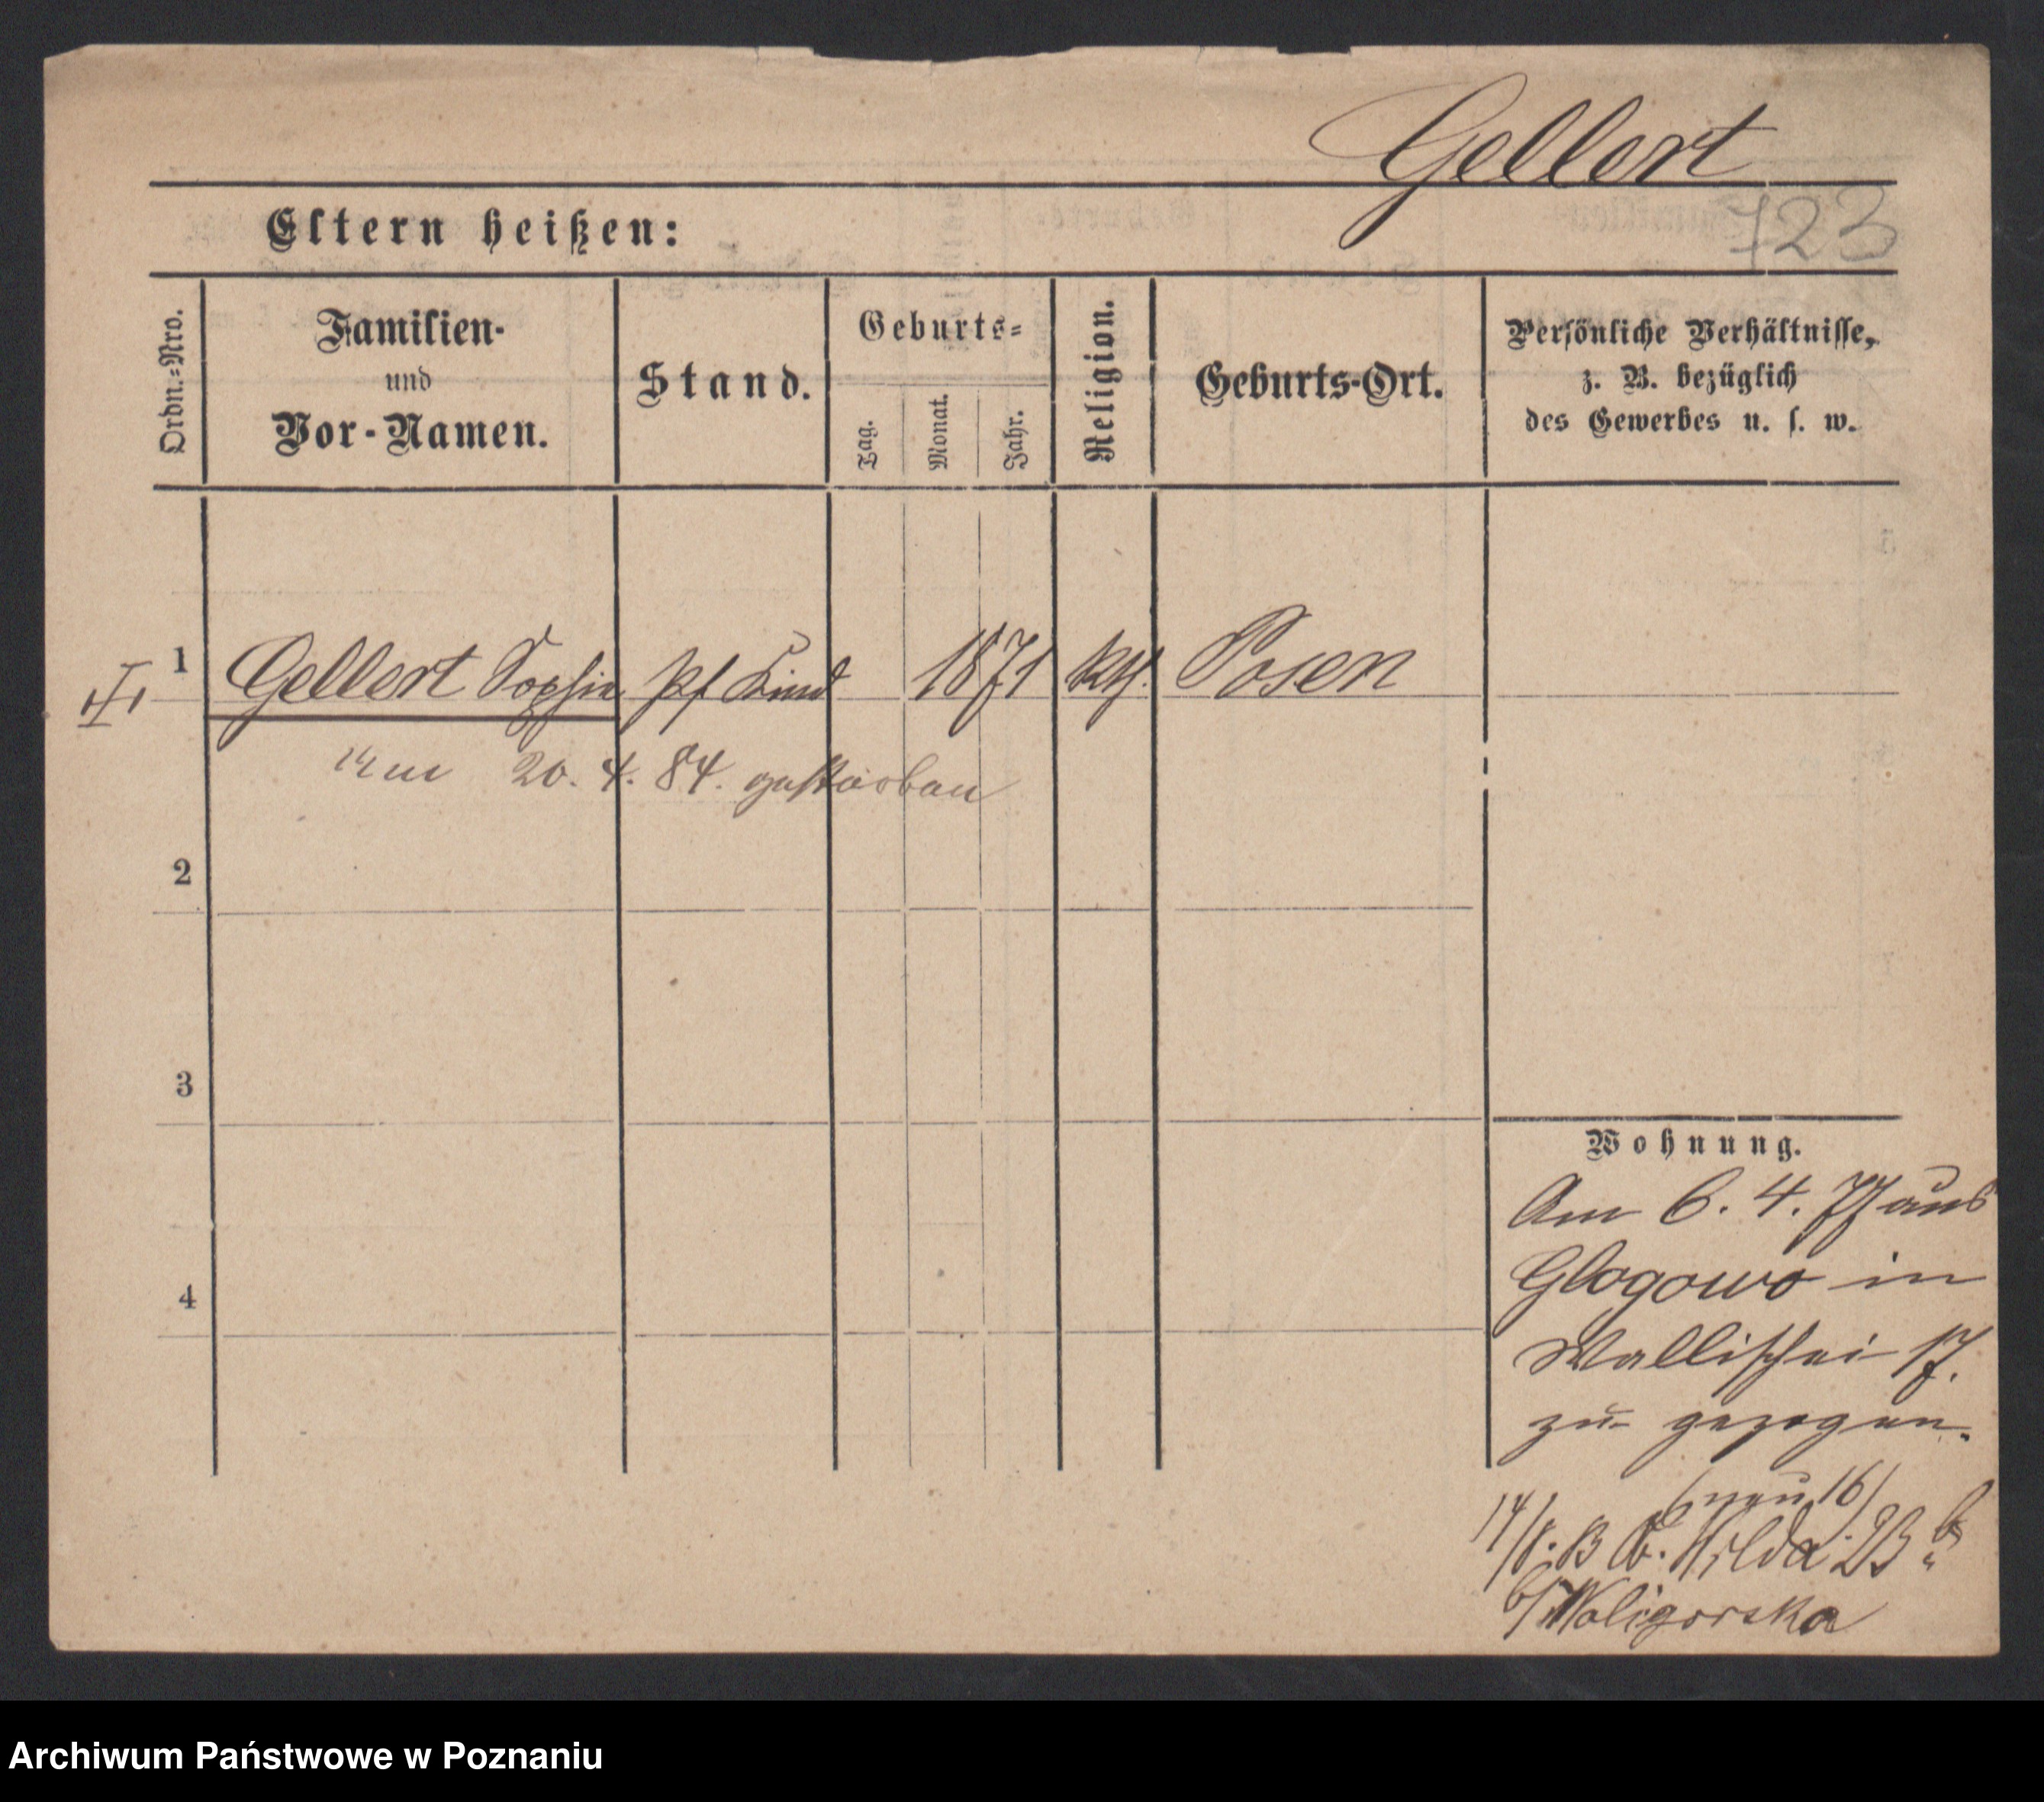 Gellert
723
Eltern heißen:
Ordn.=Nro.
Familien-
und
Vor-Namen.
Stand.
Geburts=
Tag.
Monat.
Jahr.
Religion.
Geburts-Ort.
Persönliche Verhältnisse,
z. B. bezüglich
des Gewerbes u. s. w.
1 Gellert Sophie pf Kind 1871 kth. Posen
20. 4. 84. gestorben
2
3
4
Wohnung.
Am 6. 4. 77 aus
Glogowo in
Wallischei 17.
zu gezogen.
(neu 16)
Hilda 23
b/ Woligorska
Archiwum Państwowe w Poznaniu